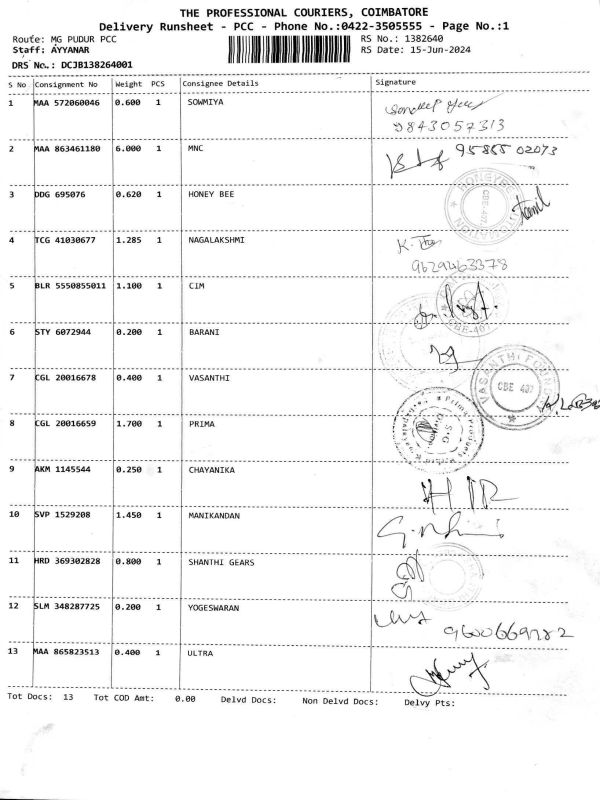 THE PROFESSIONAL COURIERS, COIMBATORE
Delivery Runsheet - PCC - Phone No.:0422-3505555 - Page No.:1
Route: MG PUDUR PCC RS No.: 1382640
Staff: AYYANAR RS Date: 15-Jun-2024
DRS No.: DCJB138264001
S No Consignment No Weight PCS Consignee Details Signature
1 MAA 572060046 0.600 1 SOWMIYA
9843057313
2 MAA 863461180 6.000 1 MNC
3 DDG 695076 0.620 1 HONEY BEE Tamil
4 TCG 41030677 1.285 1 NAGALAKSHMI
9629463378
5 BLR 5550855011 1.100 1 CIM
CBE-407
6 STY 6072944 0.200 1 BARANI
7 CGL 20016678 0.400 1 VASANTHI VASANTHI CBE 407
8 CGL 20016659 1.700 1 PRIMA
9 AKM 1145544 0.250 1 CHAYANIKA
10 SVP 1529208 1.450 1 MANIKANDAN
11 HRD 369302828 0.800 1 SHANTHI GEARS
12 SLM 348287725 0.200 1 YOGESWARAN
13 MAA 865823513 0.400 1 ULTRA
Tot Docs: 13 Tot COD Amt: 0.00 Delvd Docs: Non Delvd Docs: Delvy Pts: